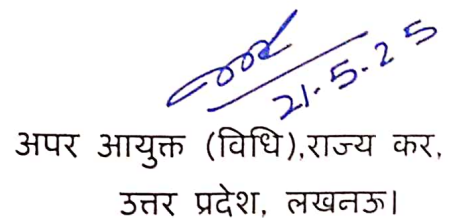 21.5.25
अपर आयुक्त (विधि),राज्य कर,
उत्तर प्रदेश, लखनऊ।